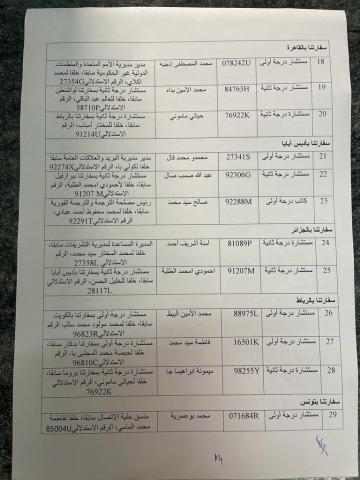 سفارتنا بالقاهرة
18 مستشار درجة أولى 078242U محمد المصطفى إنجيه مدير مديرية الأمم المتحدة والمنظمات
الدولية غير الحكومية سابقا، خلفا لمحمد
الرقم الاستدلالي27354G
19 مستشار درجة ثانية 84763H محمد الأمين بداه مستشار درجة ثانية بسفارتنا لواشنطن
سابقا، خلفا للعالم عبد الباقي، الرقم
الاستدلالي58710P
20 مستشار درجة ثانية 76922K حياتي ماموني مستشار درجة ثانية بسفارتنا بباريس
سابقا، خلفا للمختار أمباب، الرقم
الاستدلالي91214U
سفارتنا بأديس أبابا
21 مستشار درجة أولى 27341S محمدو محمد قال مدير مديرية البريد والعلاقات العامة سابقا
خلفا لكولي با، الرقم الاستدلالي92274X
22 مستشار درجة ثانية 92306G عبد الله صمب صال مستشار درجة ثانية بسفارتنا
سابقا، خلفا لأحمودي امحمد الطلبة، الرقم
الاستدلالي91207 M
23 كاتب درجة أولى 92288M صالح سيد محمد رئيس مصلحة الترجمة والترجمة الفورية
سابقا، خلفا لمحمد محفوظ أحمد عبادي،
الرقم الاستدلالي92291T
سفارتنا بالجزائر
24 مستشارة درجة ثانية 81089P آمنة أشريف أحمد المديرة المساعدة لمديرية التشريفات سابقا،
خلفا لمحمد المختار سيد محمد، الرقم
الاستدلالي27358L
25 مستشار درجة ثانية 91207M احمودي امحمد الطلبة مستشار درجة ثانية بسفارتنا بأديس أبابا
سابقا، خلفا للخليل الحسن، الرقم الاستدلالي
28117L
سفارتنا بالرباط
26 مستشار درجة أولى 88975L محمد الأمين البيظ مستشار درجة أولى بسفارتنا بالكويت
سابقا، خلفا لمحمد مولود محمد سالم، الرقم
الاستدلالي96823R
27 مستشارة درجة أولى 16501K فاطمة سيد محمد مستشارة درجة أولى بسفارتنا بدكار سابقا،
خلفا لخيصة محمد المجتبى با، الرقم
الاستدلالي96810C
28 مستشارة درجة ثانية 98255Y ميمونة ابراهيما جا مستشارة درجة ثانية بسفارتنا بروما سابقا،
خلفا لحياتي ماموني، الرقم الاستدلالي
76922K
سفارتنا بتونس
29 مستشار درجة أولى 071684R محمد بوعسرية منسق خلية الاتصال سابقا، خلفا لفاطمة
محمد المامي، الرقم الاستدلالي85004U